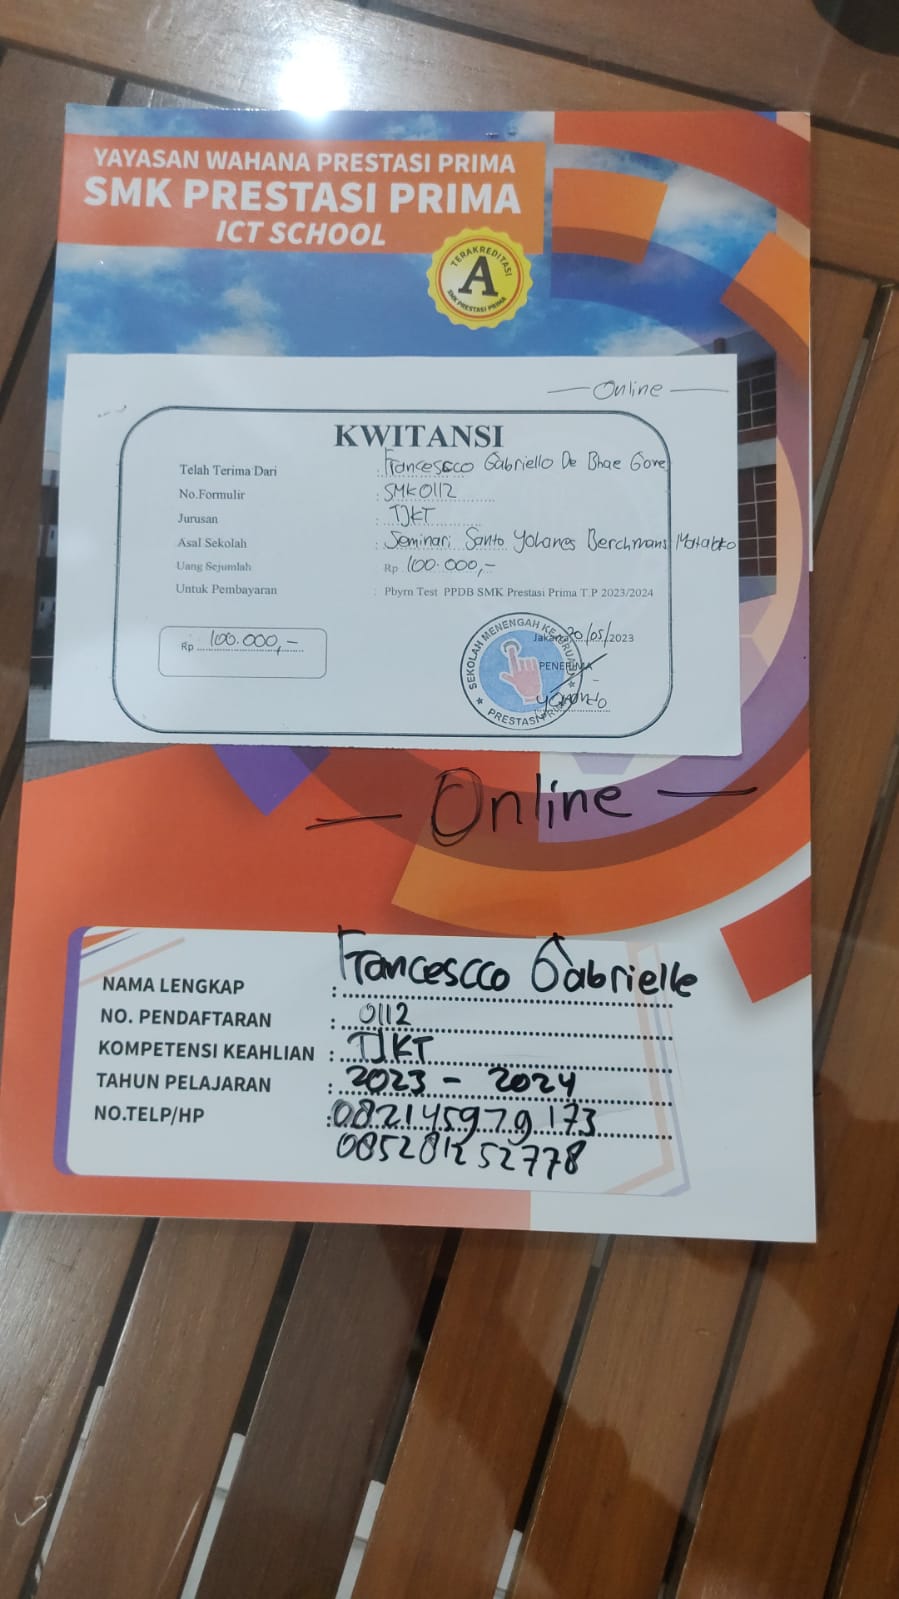 YAYASAN WAHANA PRESTASI PRIMA
SMK PRESTASI PRIMA
ICT SCHOOL
TERAKREDITASI
A
SMK PRESTASI PRIMA
— Online —
KWITANSI
Telah Terima Dari : Francescco Gabriello De Bhae Gore
No.Formulir : SMK0112
Jurusan : TJKT
Asal Sekolah : Seminari Santo Yohanes Berchmans Mataloko
Uang Sejumlah Rp 100.000,-
Untuk Pembayaran : Pbyrn Test PPDB SMK Prestasi Prima T.P 2023/2024
Rp 100.000,-
Jakarta 20/05/2023
PENERIMA
SEKOLAH MENENGAH KEJURUAN
PRESTASI PRIMA
— Online —
NAMA LENGKAP : Francescco Gabrielle
NO. PENDAFTARAN : 0112
KOMPETENSI KEAHLIAN : TJKT
TAHUN PELAJARAN : 2023 - 2024
NO.TELP/HP : 082145979173
085281252778